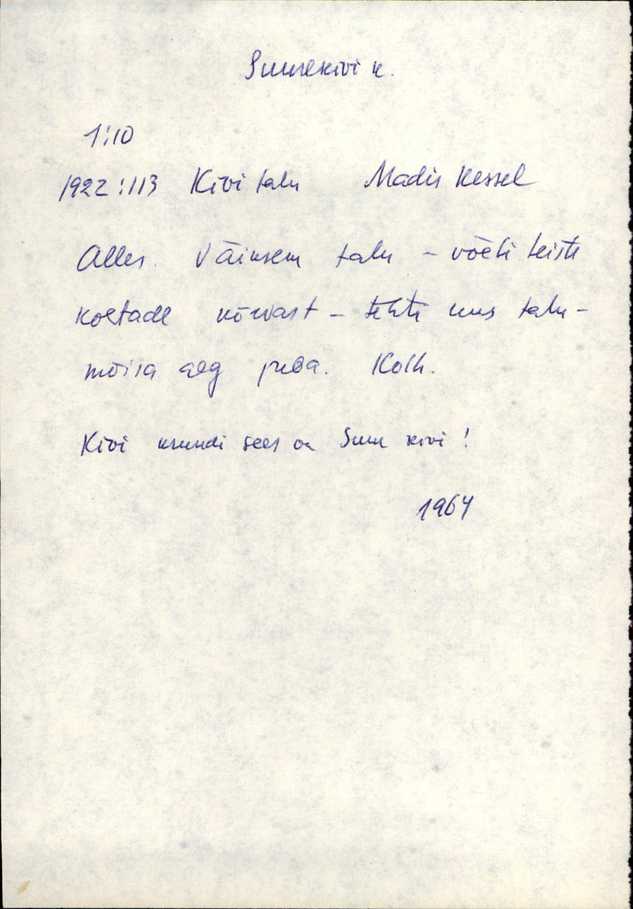 Suurekivi k.
1:10
1922:113 Kivi talu Madis Kessel
Alles. Väiksem talu – võeti teiste
kohtade kõrvast – tehti uus talu –
mõisa aeg juba. Kolh.
Kivi krundi sees on Suur kivi!
1964